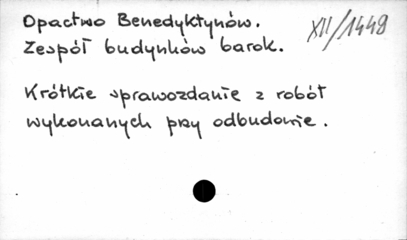 Opactwo Benedyktynów.
XII/1448
Zespół budynków barok.
Krótkie sprawozdanie z robót
wykonanych przy odbudowie.